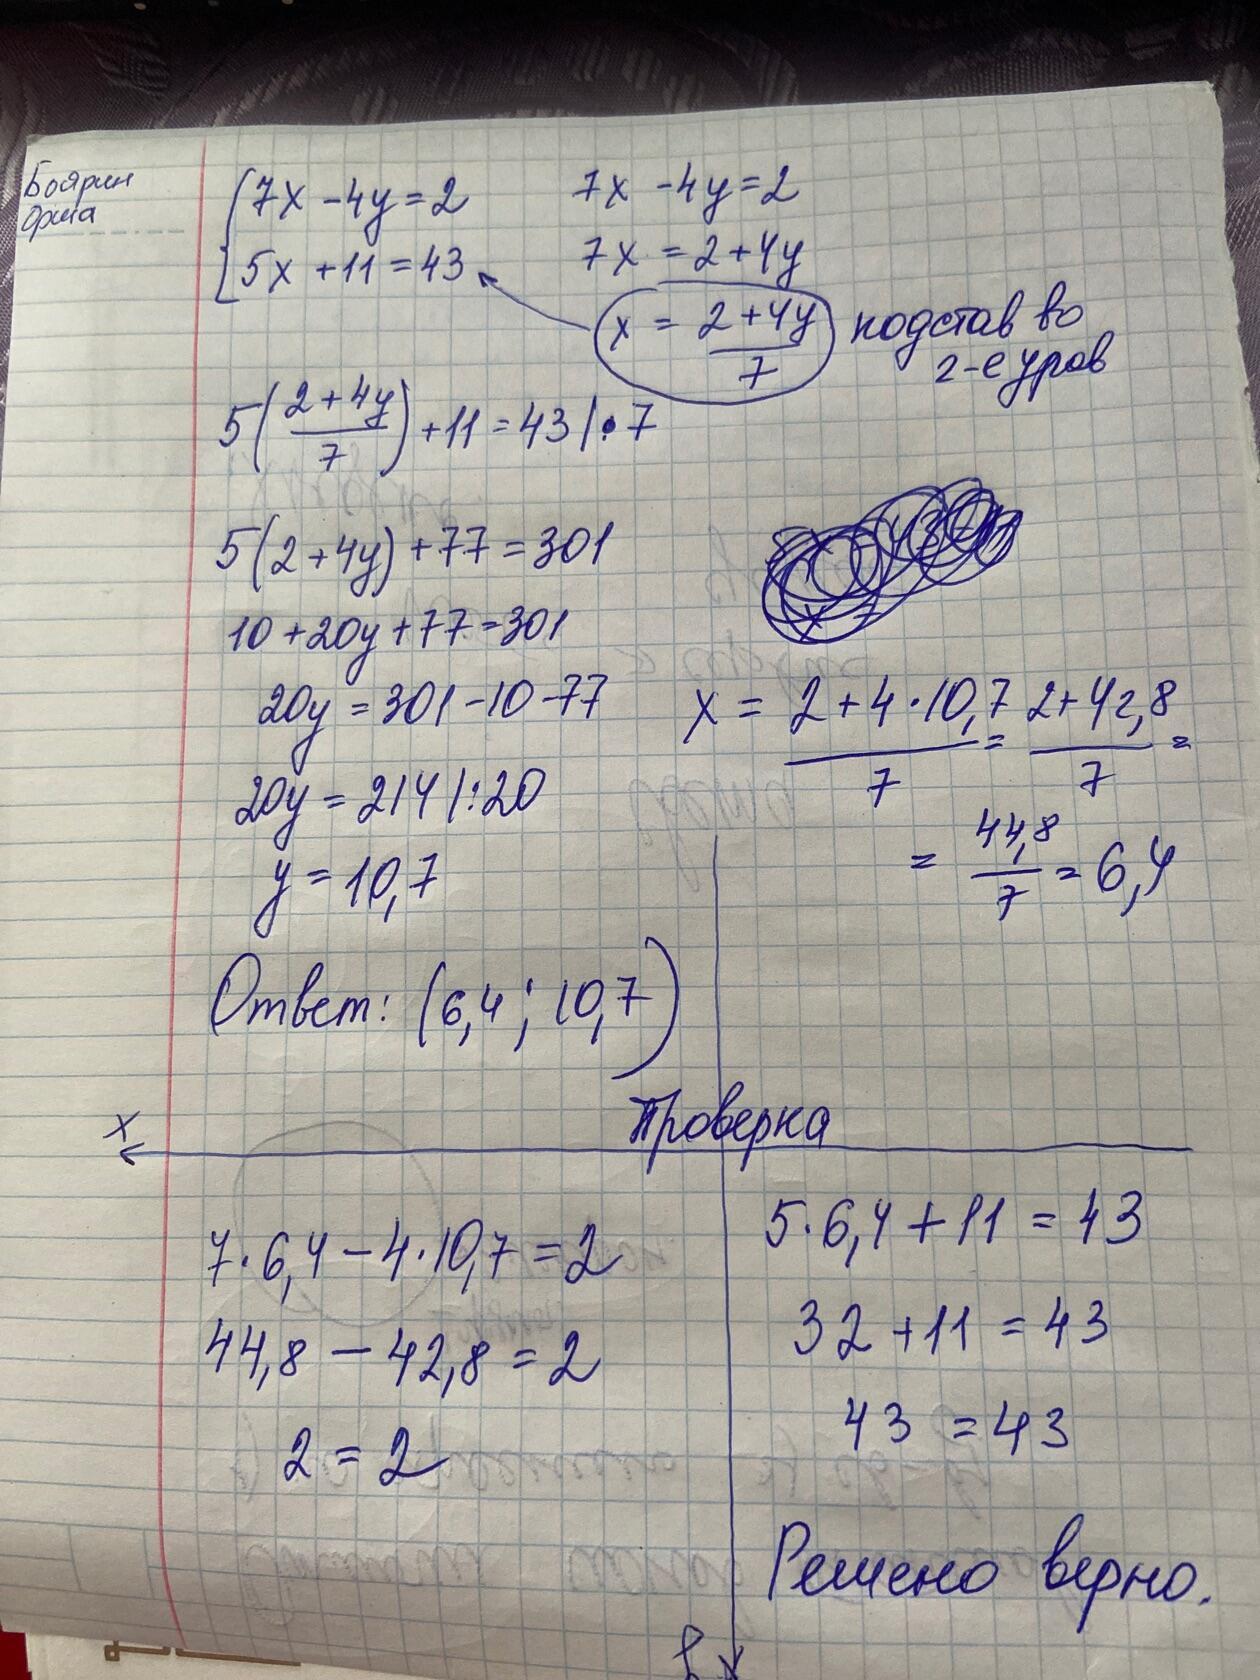 Боярин
7x - 4y = 2
5x + 11 = 43
7x - 4y = 2
7x = 2 + 4y
x = (2 + 4y)/7 подстав во
2-е урав
5((2 + 4y)/7) + 11 = 43 |·7
5(2 + 4y) + 77 = 301
10 + 20y + 77 = 301
20y = 301 - 10 - 77
20y = 214 |:20
y = 10,7
x = (2 + 4·10,7)/7 = (2 + 42,8)/7 =
= 44,8/7 = 6,4
Ответ: (6,4; 10,7)
Проверка
x
7·6,4 - 4·10,7 = 2
44,8 - 42,8 = 2
2 = 2
5·6,4 + 11 = 43
32 + 11 = 43
43 = 43
Решено верно.